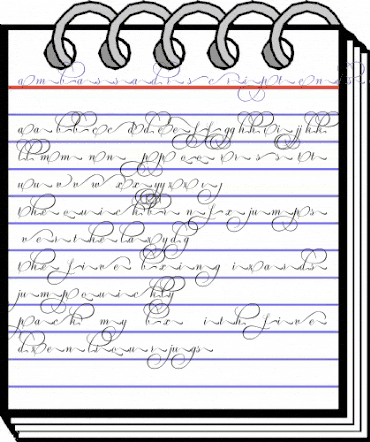 aabbccddeeffgghhiijjkk
llmmnnooppqqrrsstt
uuvvwwxxyyzz
the quick brown fox jumps
over the lazy dog
the five boxing wizards
jump quickly
pack my box with five
dozen liquor jugs